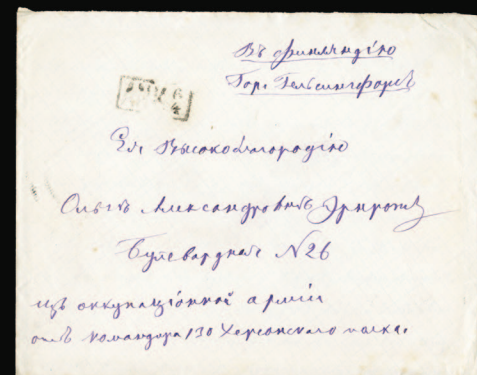 Въ Финляндію
Гор. Гельсингфорсъ
Ея Высокоблагородію
Ольгѣ Александровнѣ
Бульварная № 26
изъ оккупаціонной арміи
отъ командира 130 Херсонскаго полка.